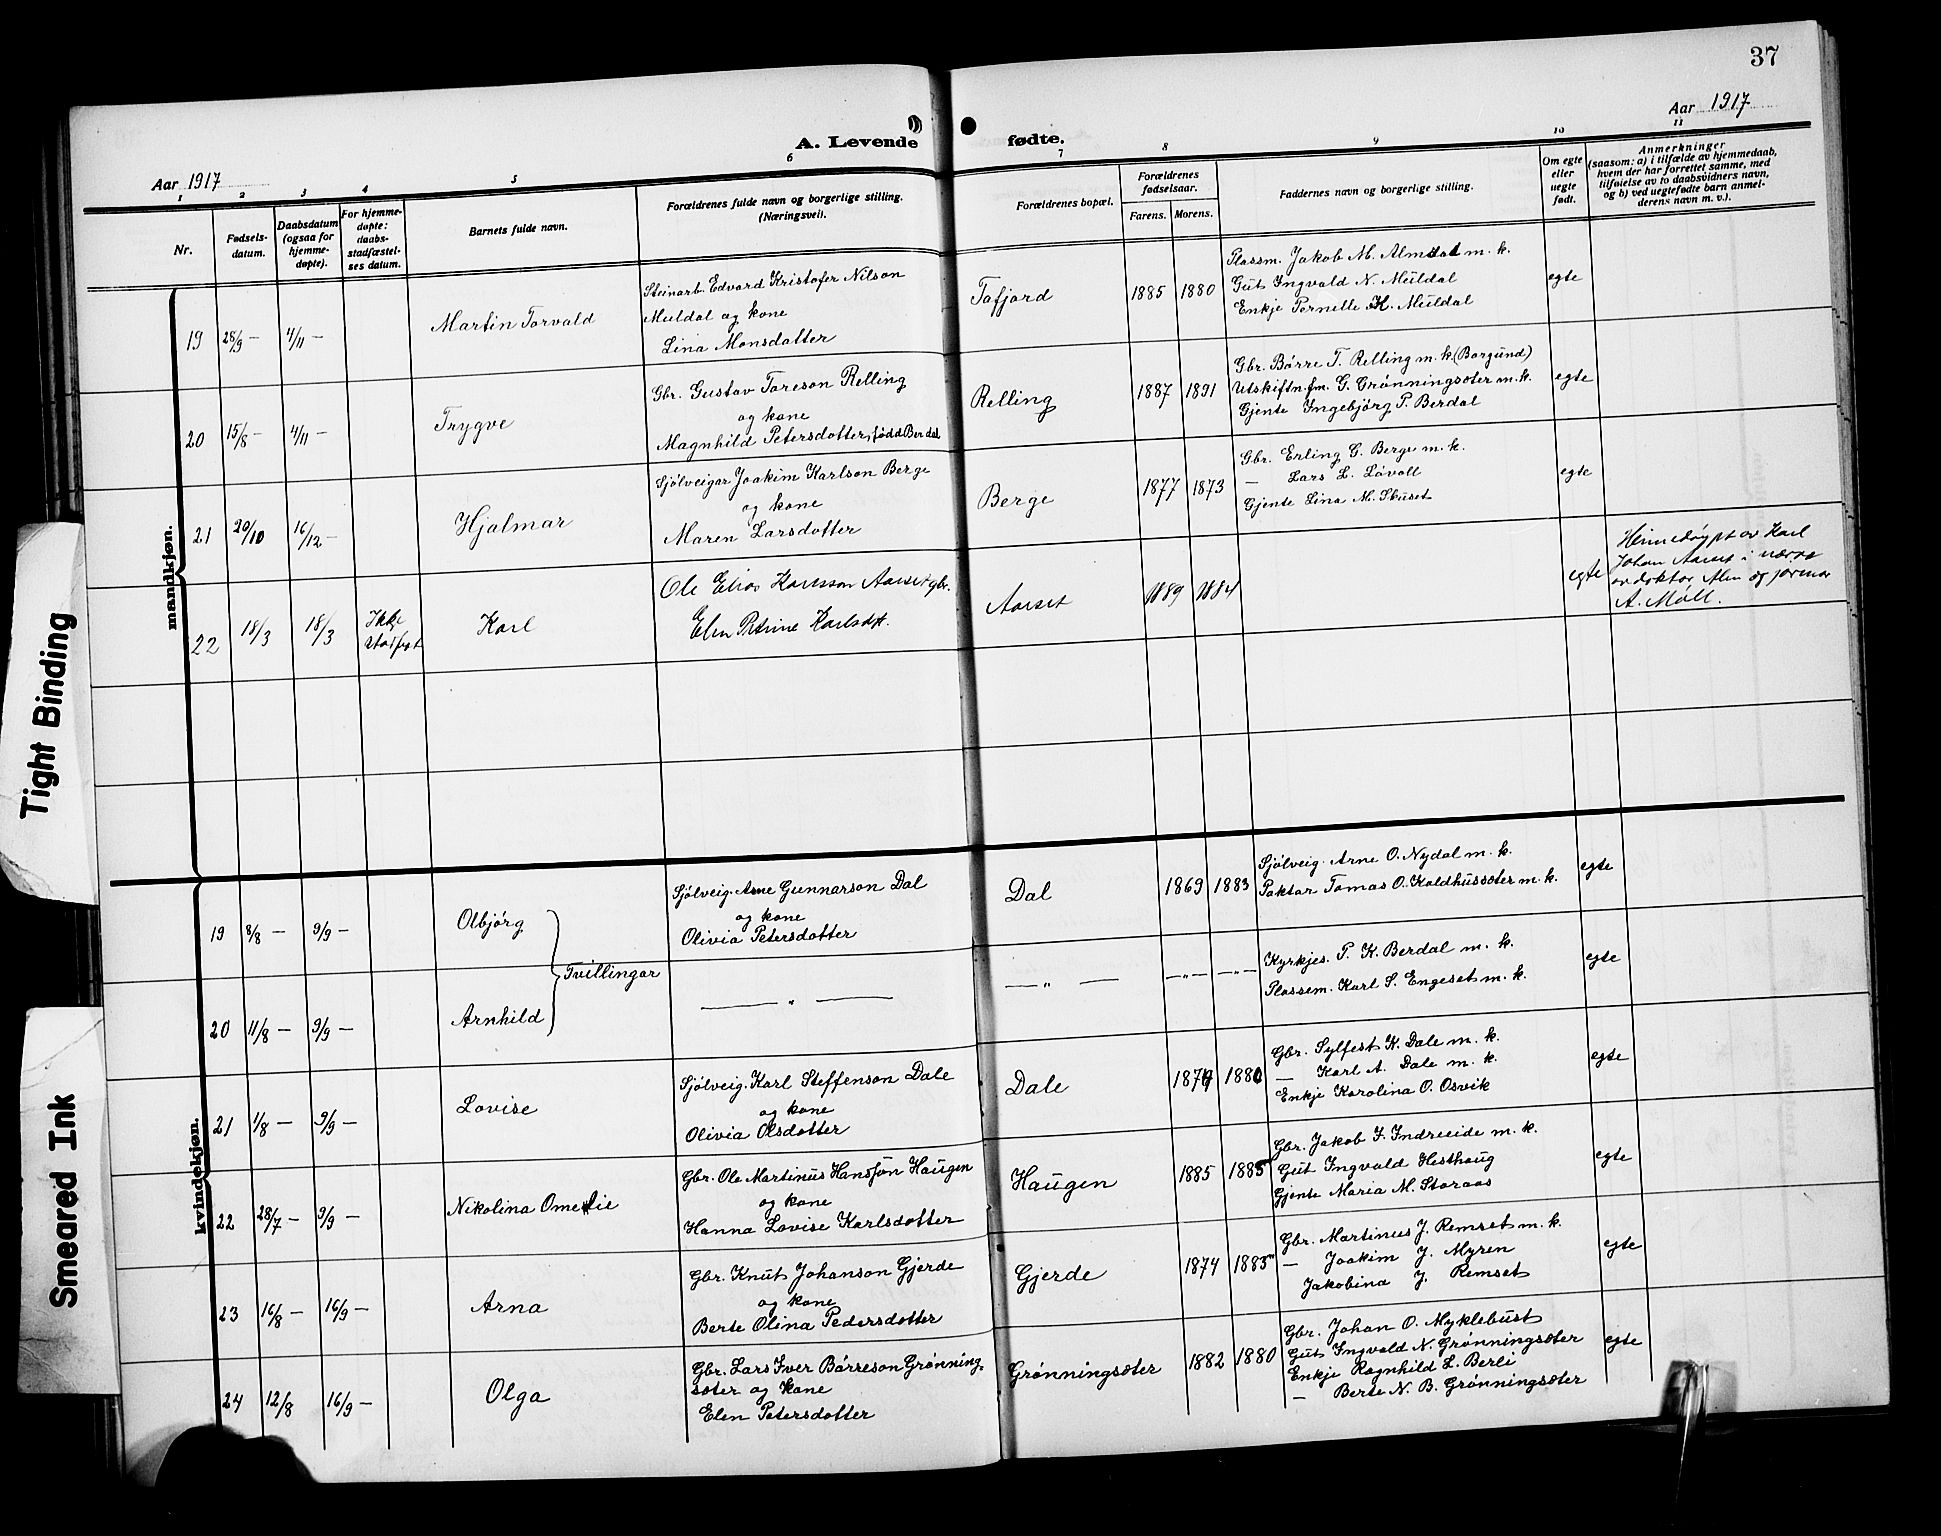 37
Aar 1917
Aar 1917
A. Levende fødte.
1 2 3 4 5 6 7 8 9 10 11
Nr.
Fødsels-
datum.
Daabsdatum
(ogsaa for
hjemme-
døpte).
For hjemme-
døpte:
daabs-
stadfæstel-
ses datum.
Barnets fulde navn.
Forældrenes fulde navn og borgerlige stilling.
(Næringsvei).
Forældrenes bopæl.
Forældrenes
fødselsaar.
Farens. Morens.
Faddernes navn og borgerlige stilling.
Om egte
eller
uegte
født.
Anmerkninger
(saasom: a) i tilfælde av hjemmedaab,
hvem der har forrettet samme, med
tilføielse av to daabsvidners navn,
og b) ved uegtefødte barn anmel-
derens navn m. v.).
mandkjøn.
19 28/9 — 4/11 — Martin Torvald
Steinarb. Edvard Kristofer Nilson
Muldal og kone
Lina Monsdotter
Tafjord 1885 1880
Plassm. Jakob M. Almdal m. k.
Gut Ingvald N. Muldal
Enkje Pernille K. Muldal
egte
20 15/8 — 4/11 — Trygve
Gbr. Gustav Toreson Relling
og kone
Magnhild Petersdotter, född Berdal
Relling 1887 1891
Gbr. Børre T. Relling m. k. (Borgund)
Utskiftn.fm. G. Grønningsæter m. k.
Gjente Ingebjørg P. Berdal
egte
21 20/10 16/12 — Hjalmar
Sjølveigar Joakim Karlson Berge
og kone
Maren Larsdotter
Berge 1877 1873
Gbr. Erling G. Berge m. k.
— Lars L. Løvoll
Gjente Lina M. Stuset
egte
22 18/3 18/3 Ikke
stadfest
Karl
Ole Elias Karlsson Aarset gbr.
Elen Petrine Karlsdt.
Aarset 1889 1884
egte
Heimedøypt av Karl
Johan Aarset i nærve
av doktor Alm og jormor
A. Moll.
kvindekjøn.
19 8/8 — 9/9 — Olbjørg
Tvillingar
Sjølveig. Arne Gunnarson Dal
og kone
Olivia Petersdotter
Dal 1869 1883
Sjølveig. Arne O. Nydal m. k.
Paktar Tomas O. Kaldhussæter m. k.
egte
20 11/8 — 9/9 — Arnhild
— " — — " — — " — — " —
Kyrkjes. P. K. Berdal m. k.
Plassem. Karl S. Engeset m. k.
egte
21 1/8 — 9/9 — Lovise
Sjølveig. Karl Steffenson Dale
og kone
Olivia Olsdotter
Dale 1874 1880
Gbr. Sylfest K. Dale m. k.
— Karl A. Dale m. k.
Enkje Karolina O. Osvik
egte
22 28/7 — 9/9 — Nikolina Ometie
Gbr. Ole Martinus Hansson Haugen
og kone
Hanna Lovise Karlsdotter
Haugen 1885 1885
Gbr. Jakob I. Indreeide m. k.
Gut Ingvald Hesthaug
Gjente Maria M. Storaas
egte
23 16/8 — 16/9 — Arna
Gbr. Knut Johanson Gjerde
og kone
Berte Olina Pedersdotter
Gjerde 1874 1885
Gbr. Martinus J. Remset m. k.
— Joakim J. Myren
Jakobina J. Remset
egte
24 12/8 16/9 — Olga
Gbr. Lars Iver Børreson Grønning-
sæter og kone
Elen Petersdotter
Grønningsæter 1882 1880
Gbr. Johan O. Myklebust
Gut Ingvald N. Grønningsæter
Enkje Ragnhild L. Berli
— Berte N. B. Grønningsæter
egte
Tight Binding
Smeared Ink